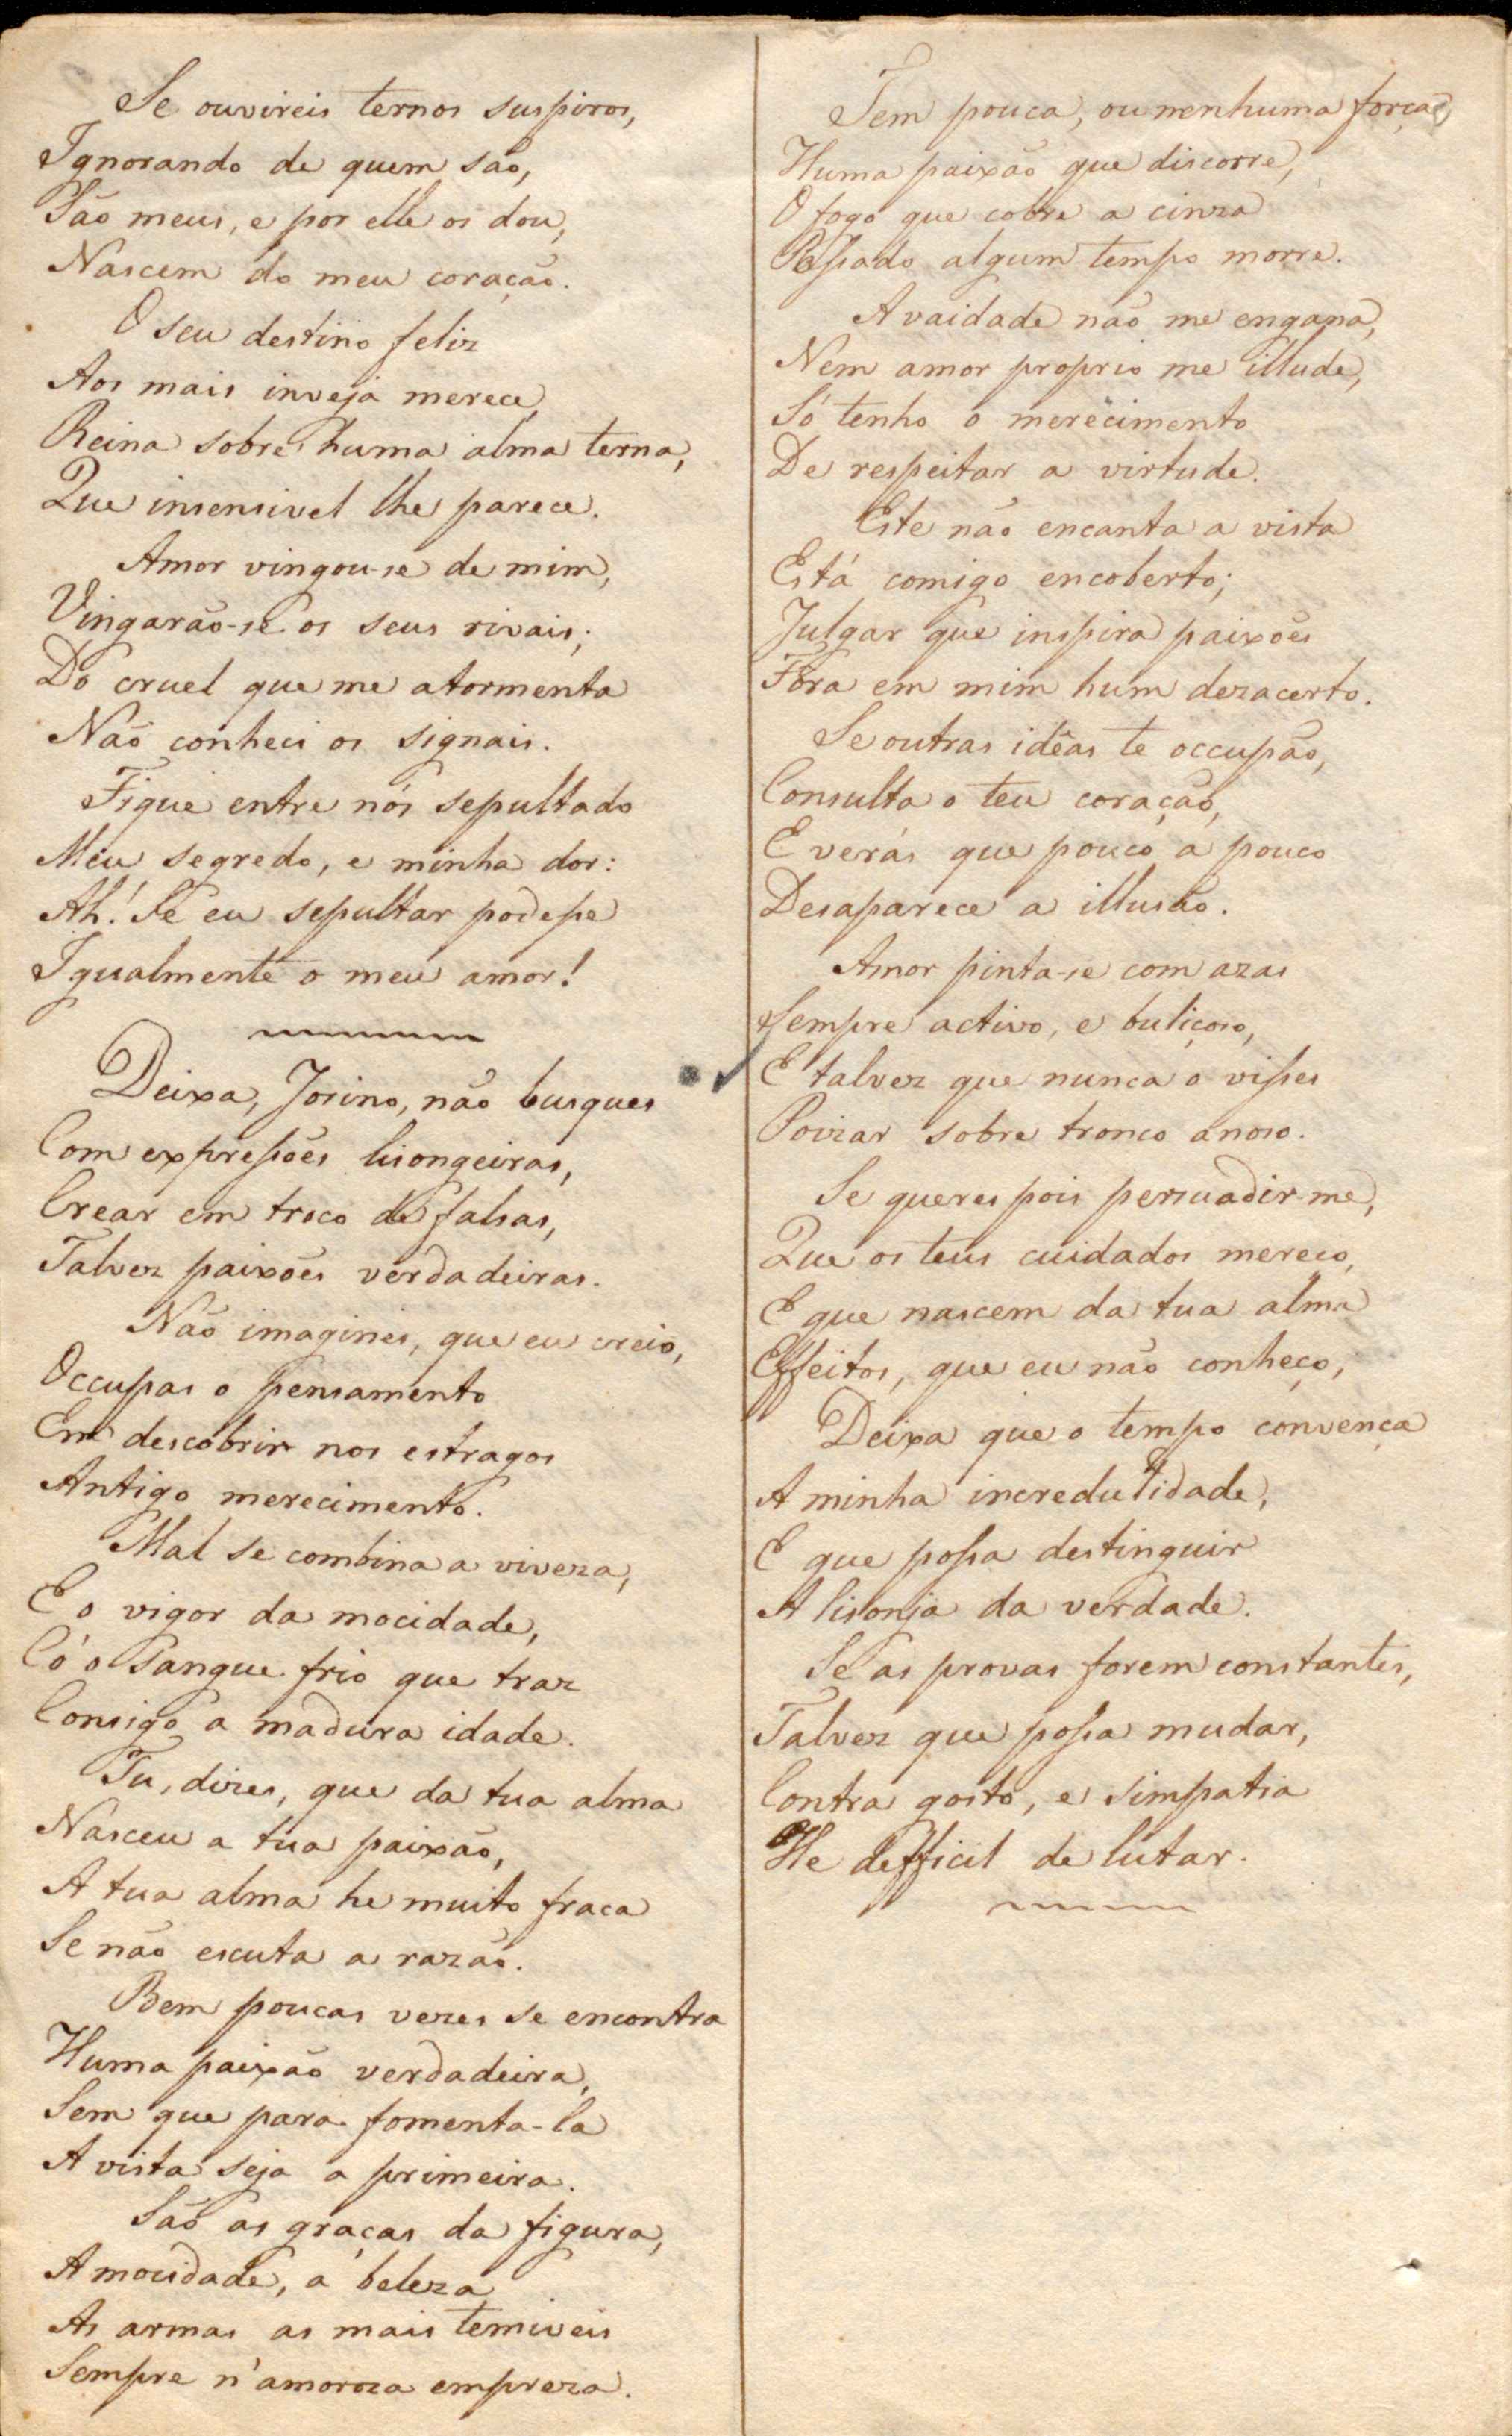 Se ouvireis ternos suspiros,
Ignorando de quem são,
São meus, e por elle os dou,
Nascem do meu coração.
O seu destino feliz
Aos mais inveja merece,
Reina sobre huma alma terna,
Que insensivel lhe parece.
Amor vingou-se de mim,
Vingarão-se os seus rivais;
Do cruel que me atormenta
Não conheci os signais.
Fique entre nós sepultado
Meu segredo, e minha dor:
Ah! Se eu sepultar podesse
Igualmente o meu amor!
Deixa, Josino, não busques
Com expressões lisongeiras,
Crear em troco de falsas,
Talvez paixões verdadeiras.
Não imagines, que eu creio,
Occupas o pensamento
Em descobrir nos estragos
Antigo merecimento.
Mal se combina a viveza,
E o vigor da mocidade,
Có o sangue frio que traz
Consigo a madura idade.
Tu, dizes, que da tua alma
Nasceu a tua paixão,
A tua alma he muito fraca
Se não escuta a razão.
Bem poucas vezes se encontra
Huma paixão verdadeira,
Sem que para fomenta-la
A vista seja a primeira.
São as graças da figura,
A mocidade, a beleza
As armas as mais temiveis
Sempre n'amoroza empreza.
Tem pouca, ou nenhuma força
Huma paixão que discorre,
O fogo que cobre a cinza
Passado algum tempo morre.
A vaidade não me engana,
Nem amor proprio me illude,
Só tenho o merecimento
De respeitar a virtude.
Este não encanta a vista
Está comigo encoberto;
Julgar que inspira paixões
Fôra em mim hum dezacerto.
Se outras idêas te occupão,
Consulta o teu coração,
E verás que pouco a pouco
Desaparece a illusão.
Amor pinta-se com azas
Sempre activo, e buliçoso,
E talvez que nunca o visses
Poizar sobre tronco anoso.
Se queres pois persuadir-me,
Que os teus cuidados mereço,
E que nascem da tua alma
Effeitos, que eu não conheço,
Deixa que o tempo convença
A minha incredulidade,
E que possa destinguir
A lisonja da verdade.
Se as provas forem constantes,
Talvez que possa mudar,
Contra gosto, e simpatia
He defficil de lutar.